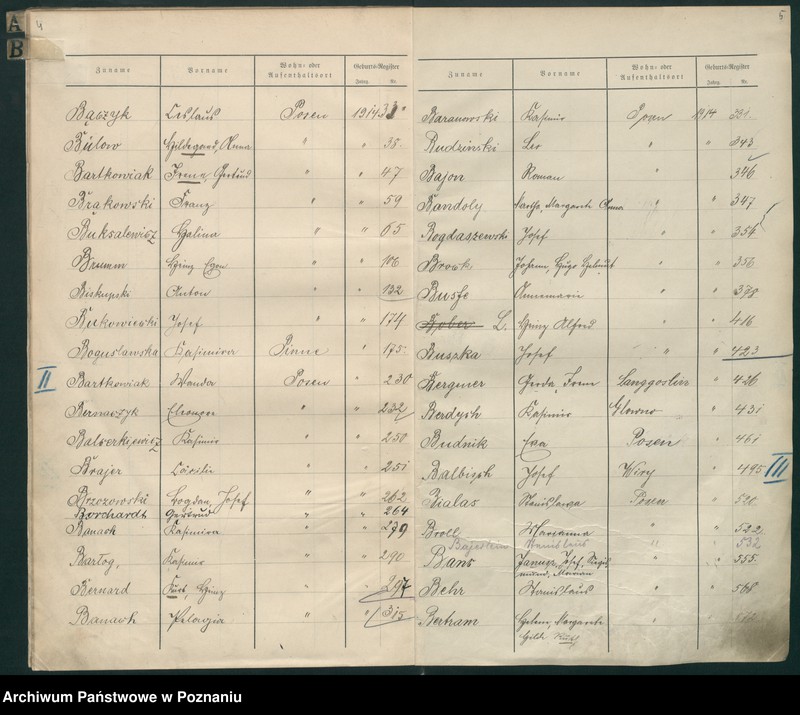 A
B
4
Zuname Vorname Wohn- oder Aufenthaltsort Geburts-Register
Jahrg. Nr.
Bączyk Ceslaus Posen 1914 31
Bülow Hildegard, Anna " " 35
Bartkowiak Irene, Gertrud " " 47
Brakowski Franz " " 59
Buksalewicz Halina " " 65
Brumm Heinz Egon " " 106
Biskupski Anton " " 132
Bukowiecki Josef " " 174
Boguslawska Kasimira Pinne " 175
II
Bartkowiak Wanda Posen " 230
Bernaczyk Eleonore " " 232
Balcerkiewicz Kasimir " " 250
Brajer Cäcilie " " 251
Brzozowski Bogdan, Josef " " 262
Borchardt Gertrud " " 264
Banach Kasimira " " 279
Bartog, Kasimir " " 290
Bernard Kurt, Heinz 297
Banach Pelagia " " 315
5
Zuname Vorname Wohn- oder Aufenthaltsort Geburts-Register
Jahrg. Nr.
Baranowski Kasimir Posen 1914 331
Budzinski Leo " " 343
Bajon Roman " 346
Bandoly Martha, Margarete Anna " 347
Bogdaszewski Josef " " 354
Browk Johann, Hugo " " 356
Busse Annemarie " " 378
L. Heinz Alfred " " 416
Buszka Josef " " 423
Bergner Gerda, Irene Langgoslin " 426
Berdych Kasimir Glowno " 431
Budnik Eva Posen " 461
Balbisch Josef Wiry " 495
III
Bialas Stanislawa Posen " 520
Broll Marianna " " 522
Stanislaus " 532
Bans Janusz, Josef, Sigismund, Marian " " 555
Behr Stanislaus " " 568
Bertham Helene, Margarete " "
Hilde Ruth
Archiwum Państwowe w Poznaniu